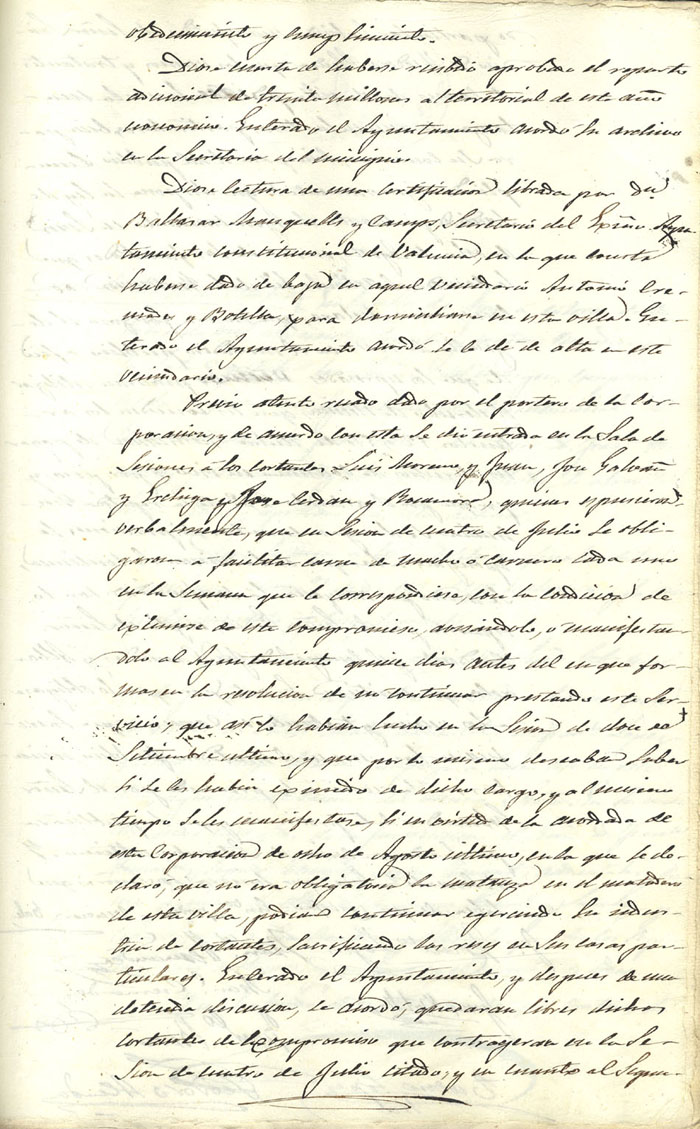 obedecimiento y cumplimiento.
Diose cuenta de haberse recibido aprobado el reparto
adicional de treinta millones al territorial de este año
economico. Enterado el Ayuntamiento acordó su archivo
en la Secretaria del municipio.
Diose lectura de una certificacion librada por Dn.
Baltasar y Camps, Secretario del Exmo. Ayun-
tamiento constitucional de Valencia, en la que consta
haberse dado de baja en aquel vecindario Antonio Cre-
mades y Botella, para domiciliarse en esta villa. En-
terado el Ayuntamiento acordó se le dé de alta en este
vecindario.
Previo atento recado dado por el portero de la Cor-
poracion, y de acuerdo con esta se dio entrada en la Sala de
Sesiones á los cortantes Luis Moreno, y Juan, José Galvañ
y y José Cerdan y Rocamora, quienes espusieron
verbalmente, que en Sesion de cuatro de Julio se obli-
garon á facilitar carne de macho ó carnero cada uno
en la Semana que le correspondiese, con la condicion de
eximirse de este compromiso, avisándolo, o manifestan-
dolo al Ayuntamiento quince dias antes del en que for-
masen la resolucion de no continuar prestando este Ser-
vicio; que asi lo habian hecho en la Sesion de doce de
Setiembre ultimo, y que por lo mismo deseaban saber
si se les habia eximido de dicho cargo, y al mismo
tiempo se les manifestase, si en virtud de lo acordado de
esta Corporacion de ocho de Agosto último, en la que se de-
claró, que no era obligatoria la matanza en el matadero
de esta villa, podian continuar egerciendo su indus-
tria de cortantes, sacrificando las reses en sus casas par-
ticulares. Enterado el Ayuntamiento, y despues de una
detenida discusion, se acordó, quedaran libres dichos
cortantes del compromiso que contrageran en la Se-
sion de cuatro de Julio citado; y en cuanto al Segun-